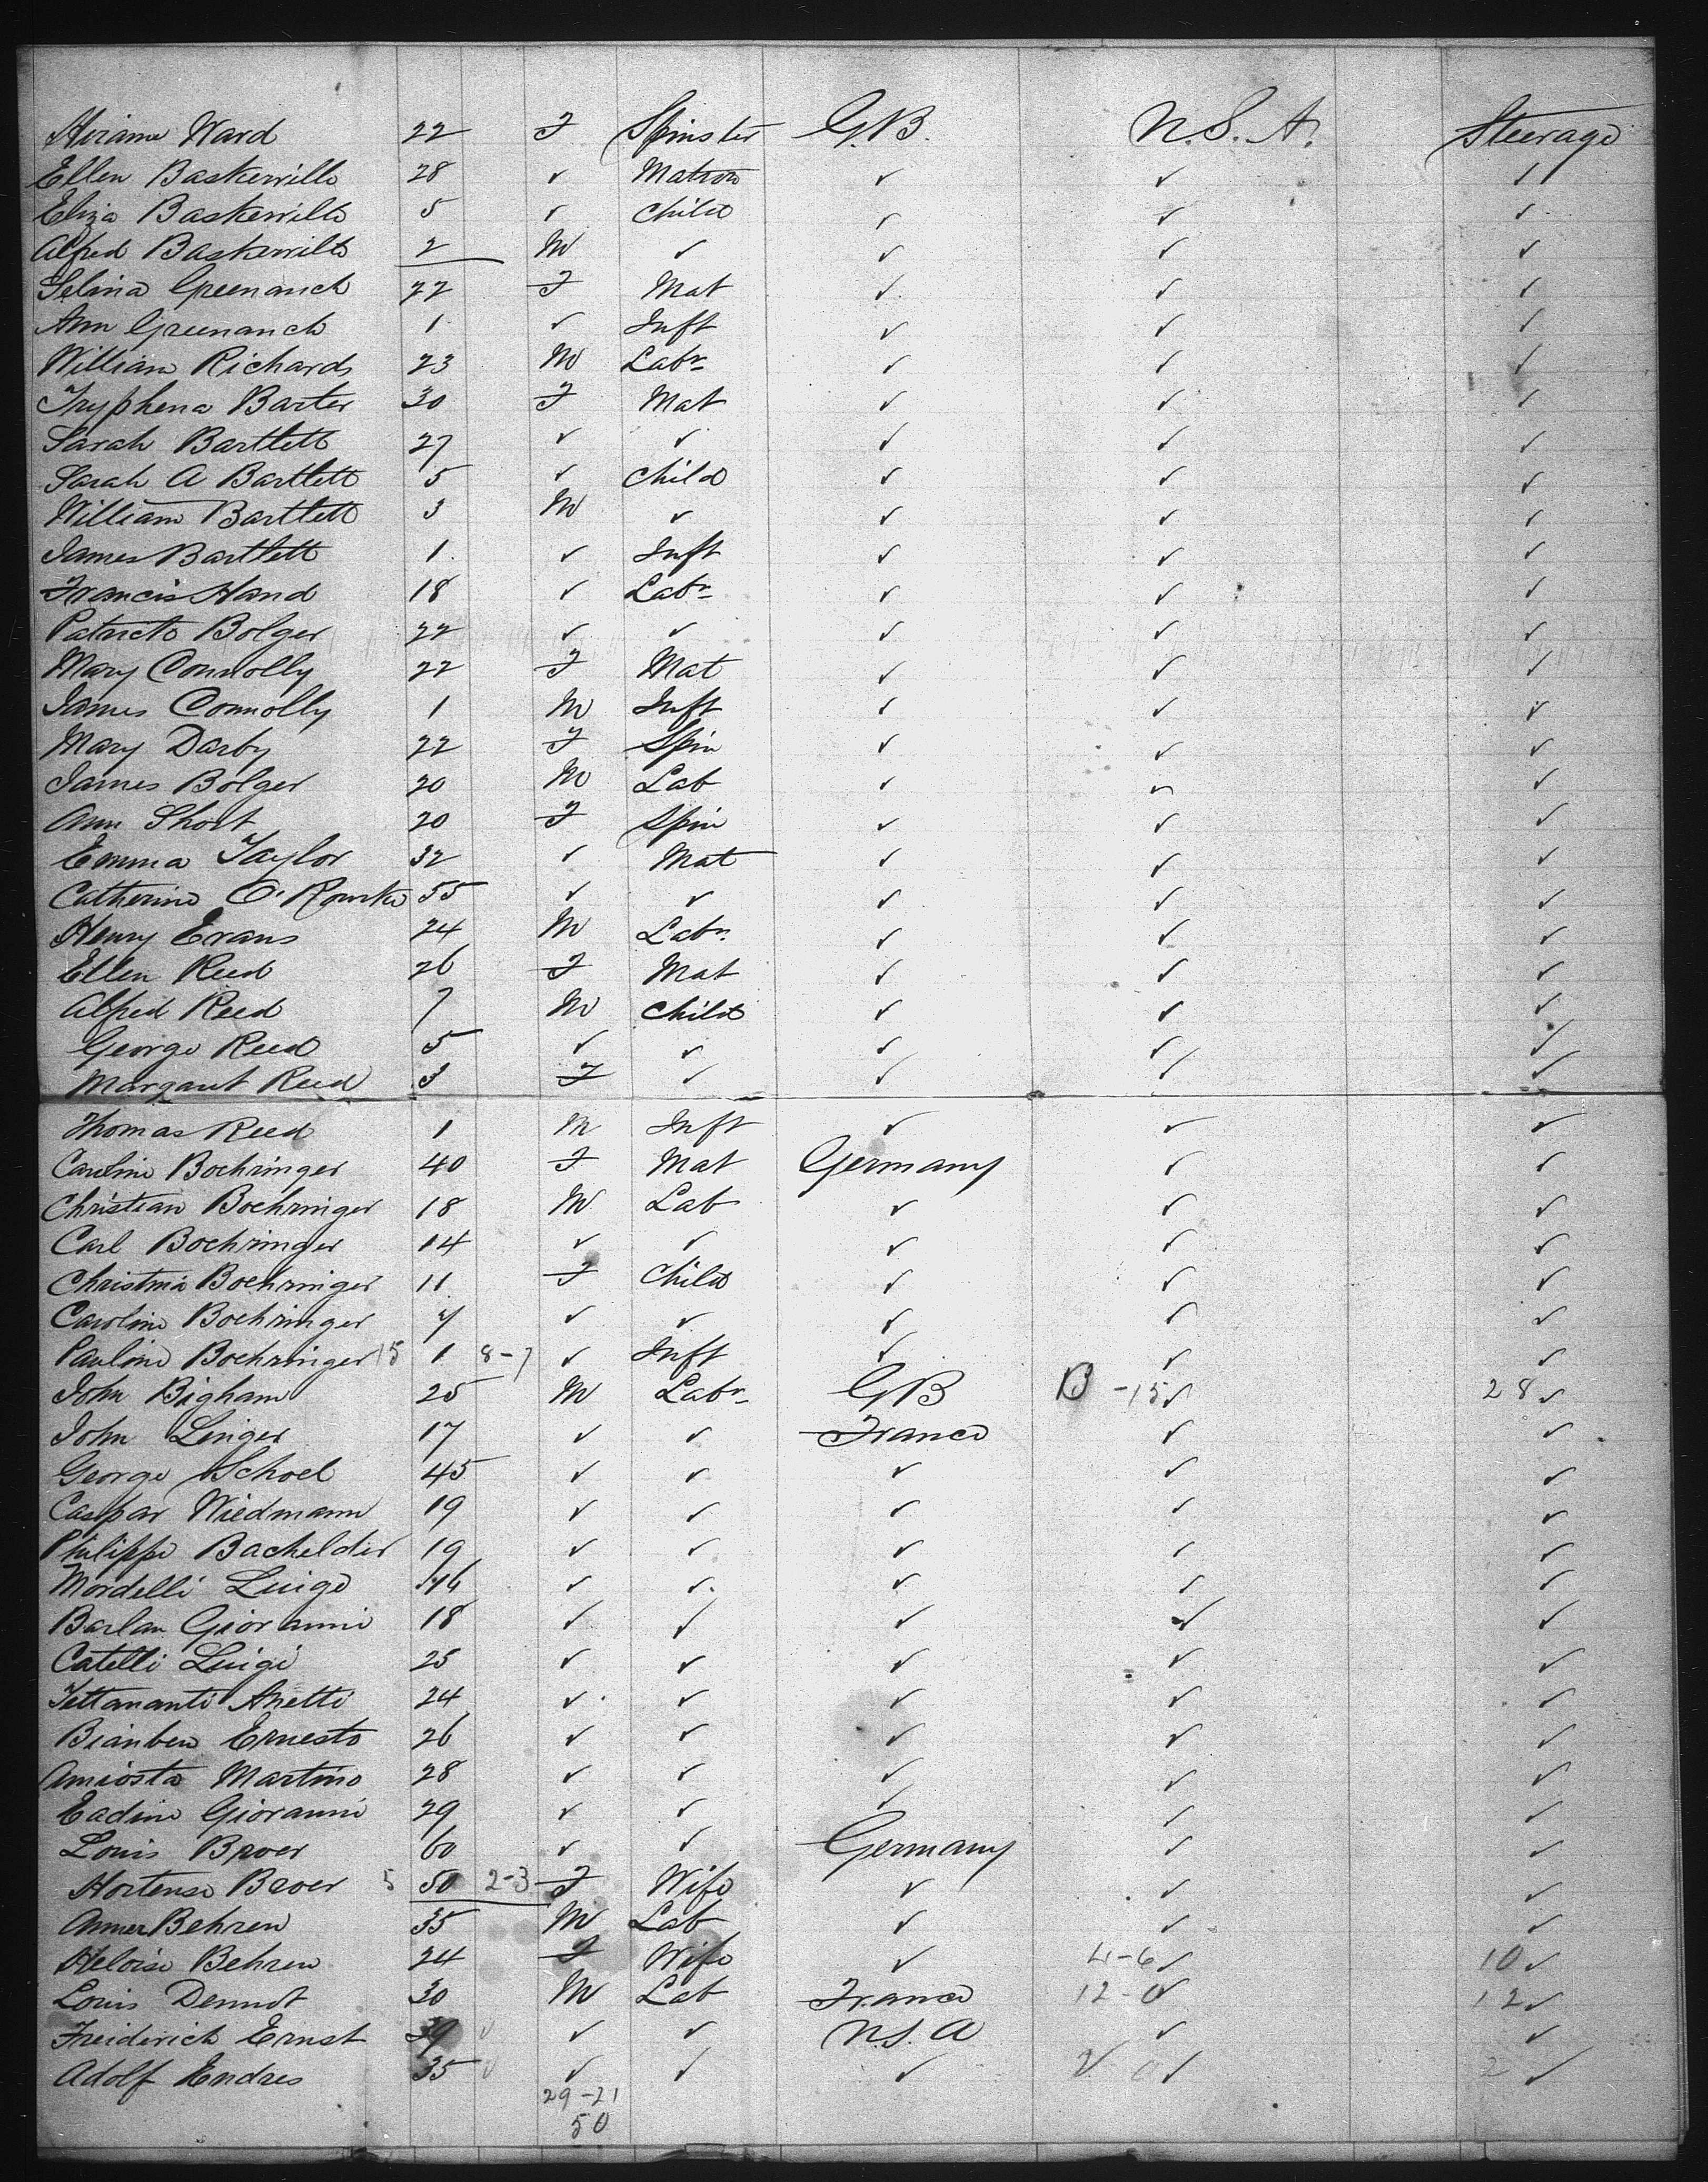 Miriam Ward 22 F Spinster G.B. U.S.A. Steerage
Ellen Baskerville 28 ✓ Matron ✓ ✓ 11
Eliza Baskerville 5 ✓ Child ✓ ✓ ✓
Alfred Baskerville 2 M ✓ ✓ ✓ ✓
Selina Greenanch 22 F Mat ✓ ✓ ✓
Ann Greenanch 1 ✓ Inft ✓ ✓ ✓
William Richards 23 M Labr ✓ ✓ ✓
Tryphena Barter 30 F Mat ✓ ✓ ✓
Sarah Bartlett 27 ✓ ✓ ✓ ✓ ✓
Sarah A Bartlett 5 ✓ Child ✓ ✓ ✓
William Bartlett 3 M ✓ ✓ ✓ ✓
James Bartlett 1 ✓ Inft ✓ ✓ ✓
Francis Hand 18 ✓ Labr ✓ ✓ ✓
Patrick Bolger 22 ✓ ✓ ✓ ✓ ✓
Mary Connolly 22 F Mat ✓ ✓ ✓
James Connolly 1 M Inft ✓ ✓ ✓
Mary Darby 22 F Spin ✓ ✓ ✓
James Bolger 20 M Lab ✓ ✓ ✓
Ann Short 20 F Spin ✓ ✓ ✓
Emma Taylor 32 ✓ Mat ✓ ✓ ✓
Catherine O'Rourke 55 ✓ ✓ ✓ ✓ ✓
Henry Evans 24 M Labr ✓ ✓ ✓
Ellen Reed 26 F Mat ✓ ✓ ✓
Alfred Reed 7 M Child ✓ ✓ ✓
George Reed 5 ✓ ✓ ✓ ✓ ✓
Margaret Reed 3 F ✓ ✓ ✓ ✓
Thomas Reed 1 M Inft ✓ ✓ ✓
Caroline Boehringer 40 F Mat Germany ✓ ✓
Christian Boehringer 18 M Lab ✓ ✓ ✓
Carl Boehringer 14 ✓ ✓ ✓ ✓ ✓
Christina Boehringer 11 F Child ✓ ✓ ✓
Caroline Boehringer 4 ✓ ✓ ✓ ✓ ✓
Pauline Boehringer 15 1 8-7 ✓ Inft ✓ ✓ ✓
John Bigham 25 M Labr GB 13-15 ✓ 28 ✓
John Linger 17 ✓ ✓ France ✓ ✓
George Schoel 45 ✓ ✓ ✓ ✓ ✓
Caspar Wiedmann 19 ✓ ✓ ✓ ✓ ✓
Philippe Bachelder 19 ✓ ✓ ✓ ✓ ✓
Mordelli Luigo 46 ✓ ✓ ✓ ✓ ✓
Barlan Giovanni 18 ✓ ✓ ✓ ✓ ✓
Catelli Luigi 25 ✓ ✓ ✓ ✓ ✓
Tettamanti Anetti 24 ✓ ✓ ✓ ✓ ✓
Bianben Ernesto 26 ✓ ✓ ✓ ✓ ✓
Amiosta Martino 28 ✓ ✓ ✓ ✓ ✓
Eadine Giovanni 29 ✓ ✓ ✓ ✓ ✓
Louis Broer 60 ✓ ✓ Germany ✓ ✓
Hortense Broer 5 50 2-3 F Wife ✓ ✓ ✓
Behren 35 M Lab ✓ ✓ ✓
Heloise Behren 24 F Wife ✓ 4-6 ✓ 10 ✓
Louis 30 M Lab France 12-0 ✓ 12 ✓
Freiderich Ernst 39 ✓ ✓ ✓ U.S.A ✓ ✓
Adolf Endres 35 ✓ ✓ ✓ ✓ 2 0 ✓ 2 ✓
29-21
50